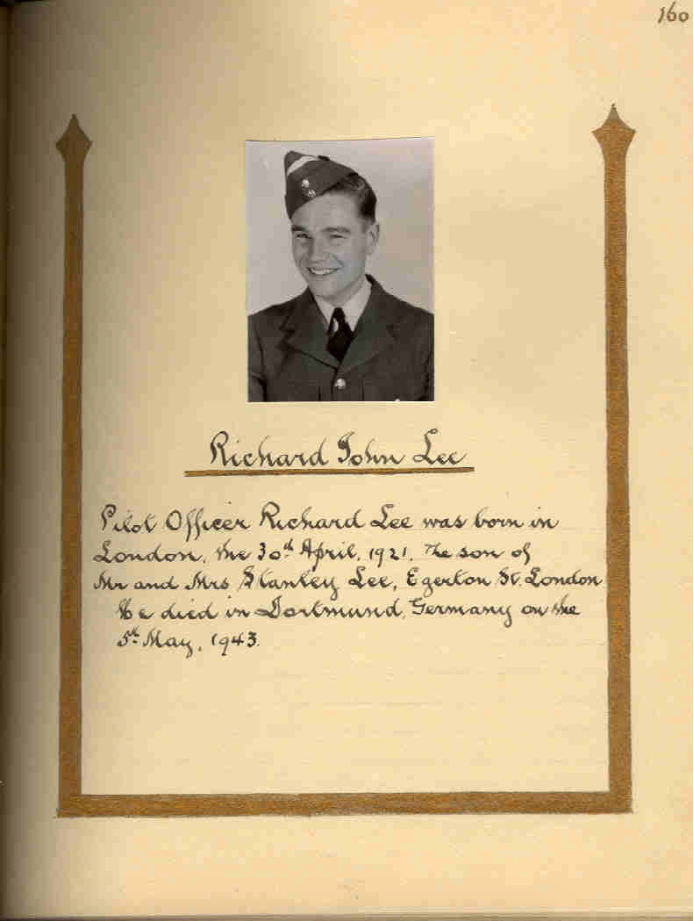 160
Richard John Lee
Pilot Officer Richard Lee was born in
London, the 30th April, 1921. The son of
Mr and Mrs Stanley Lee, Egerton St. London
He died in Dortmund, Germany on the
5th May, 1943.